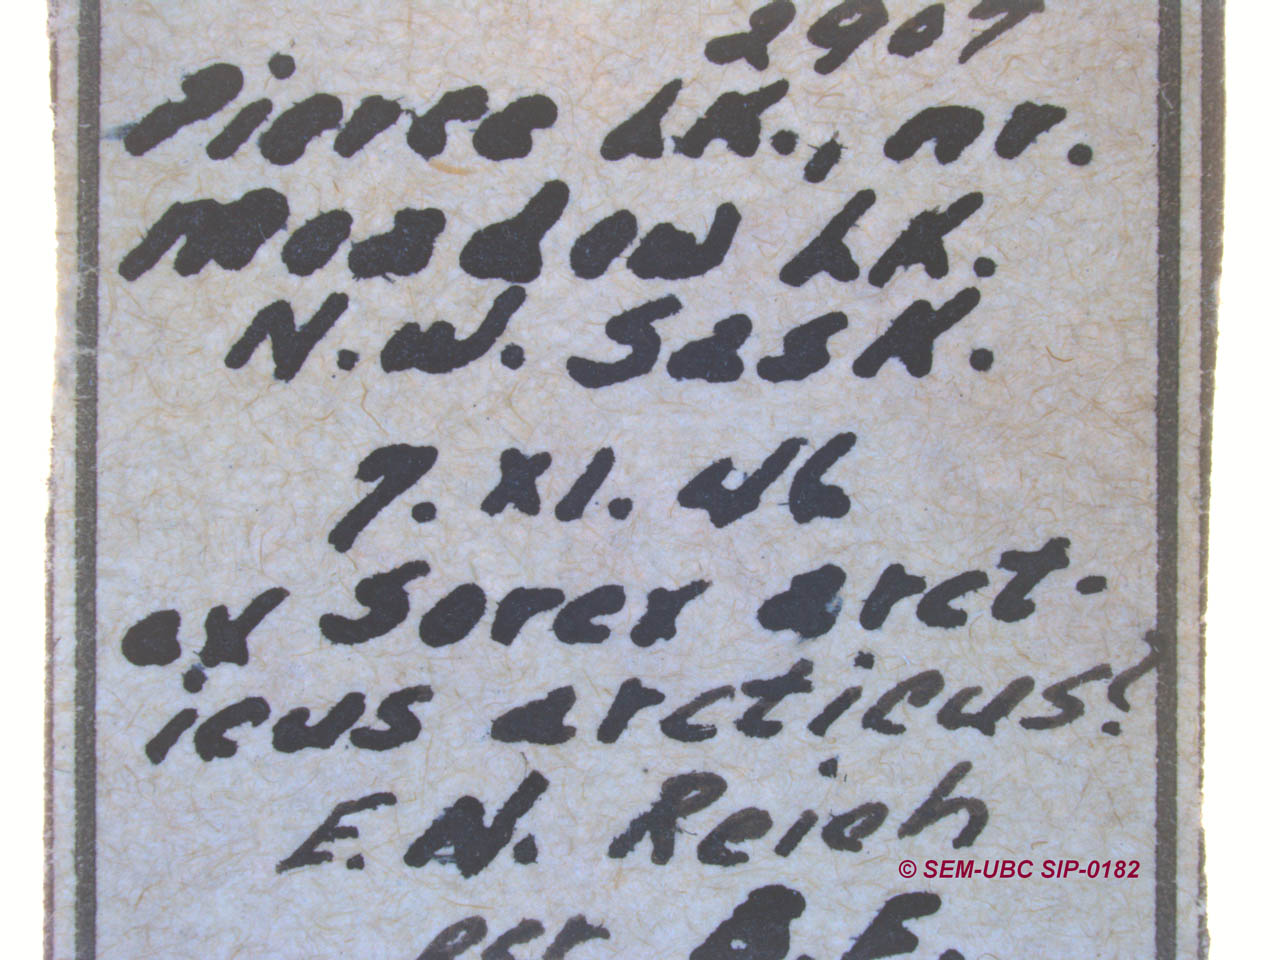 2907
Pierce Lk., nr.
Meadow Lk.
N.W. Sask.
7.XI.46
ex Sorex arct-
icus arcticus?
E.N. Reich
© SEM-UBC SIP-0182
per G.E.